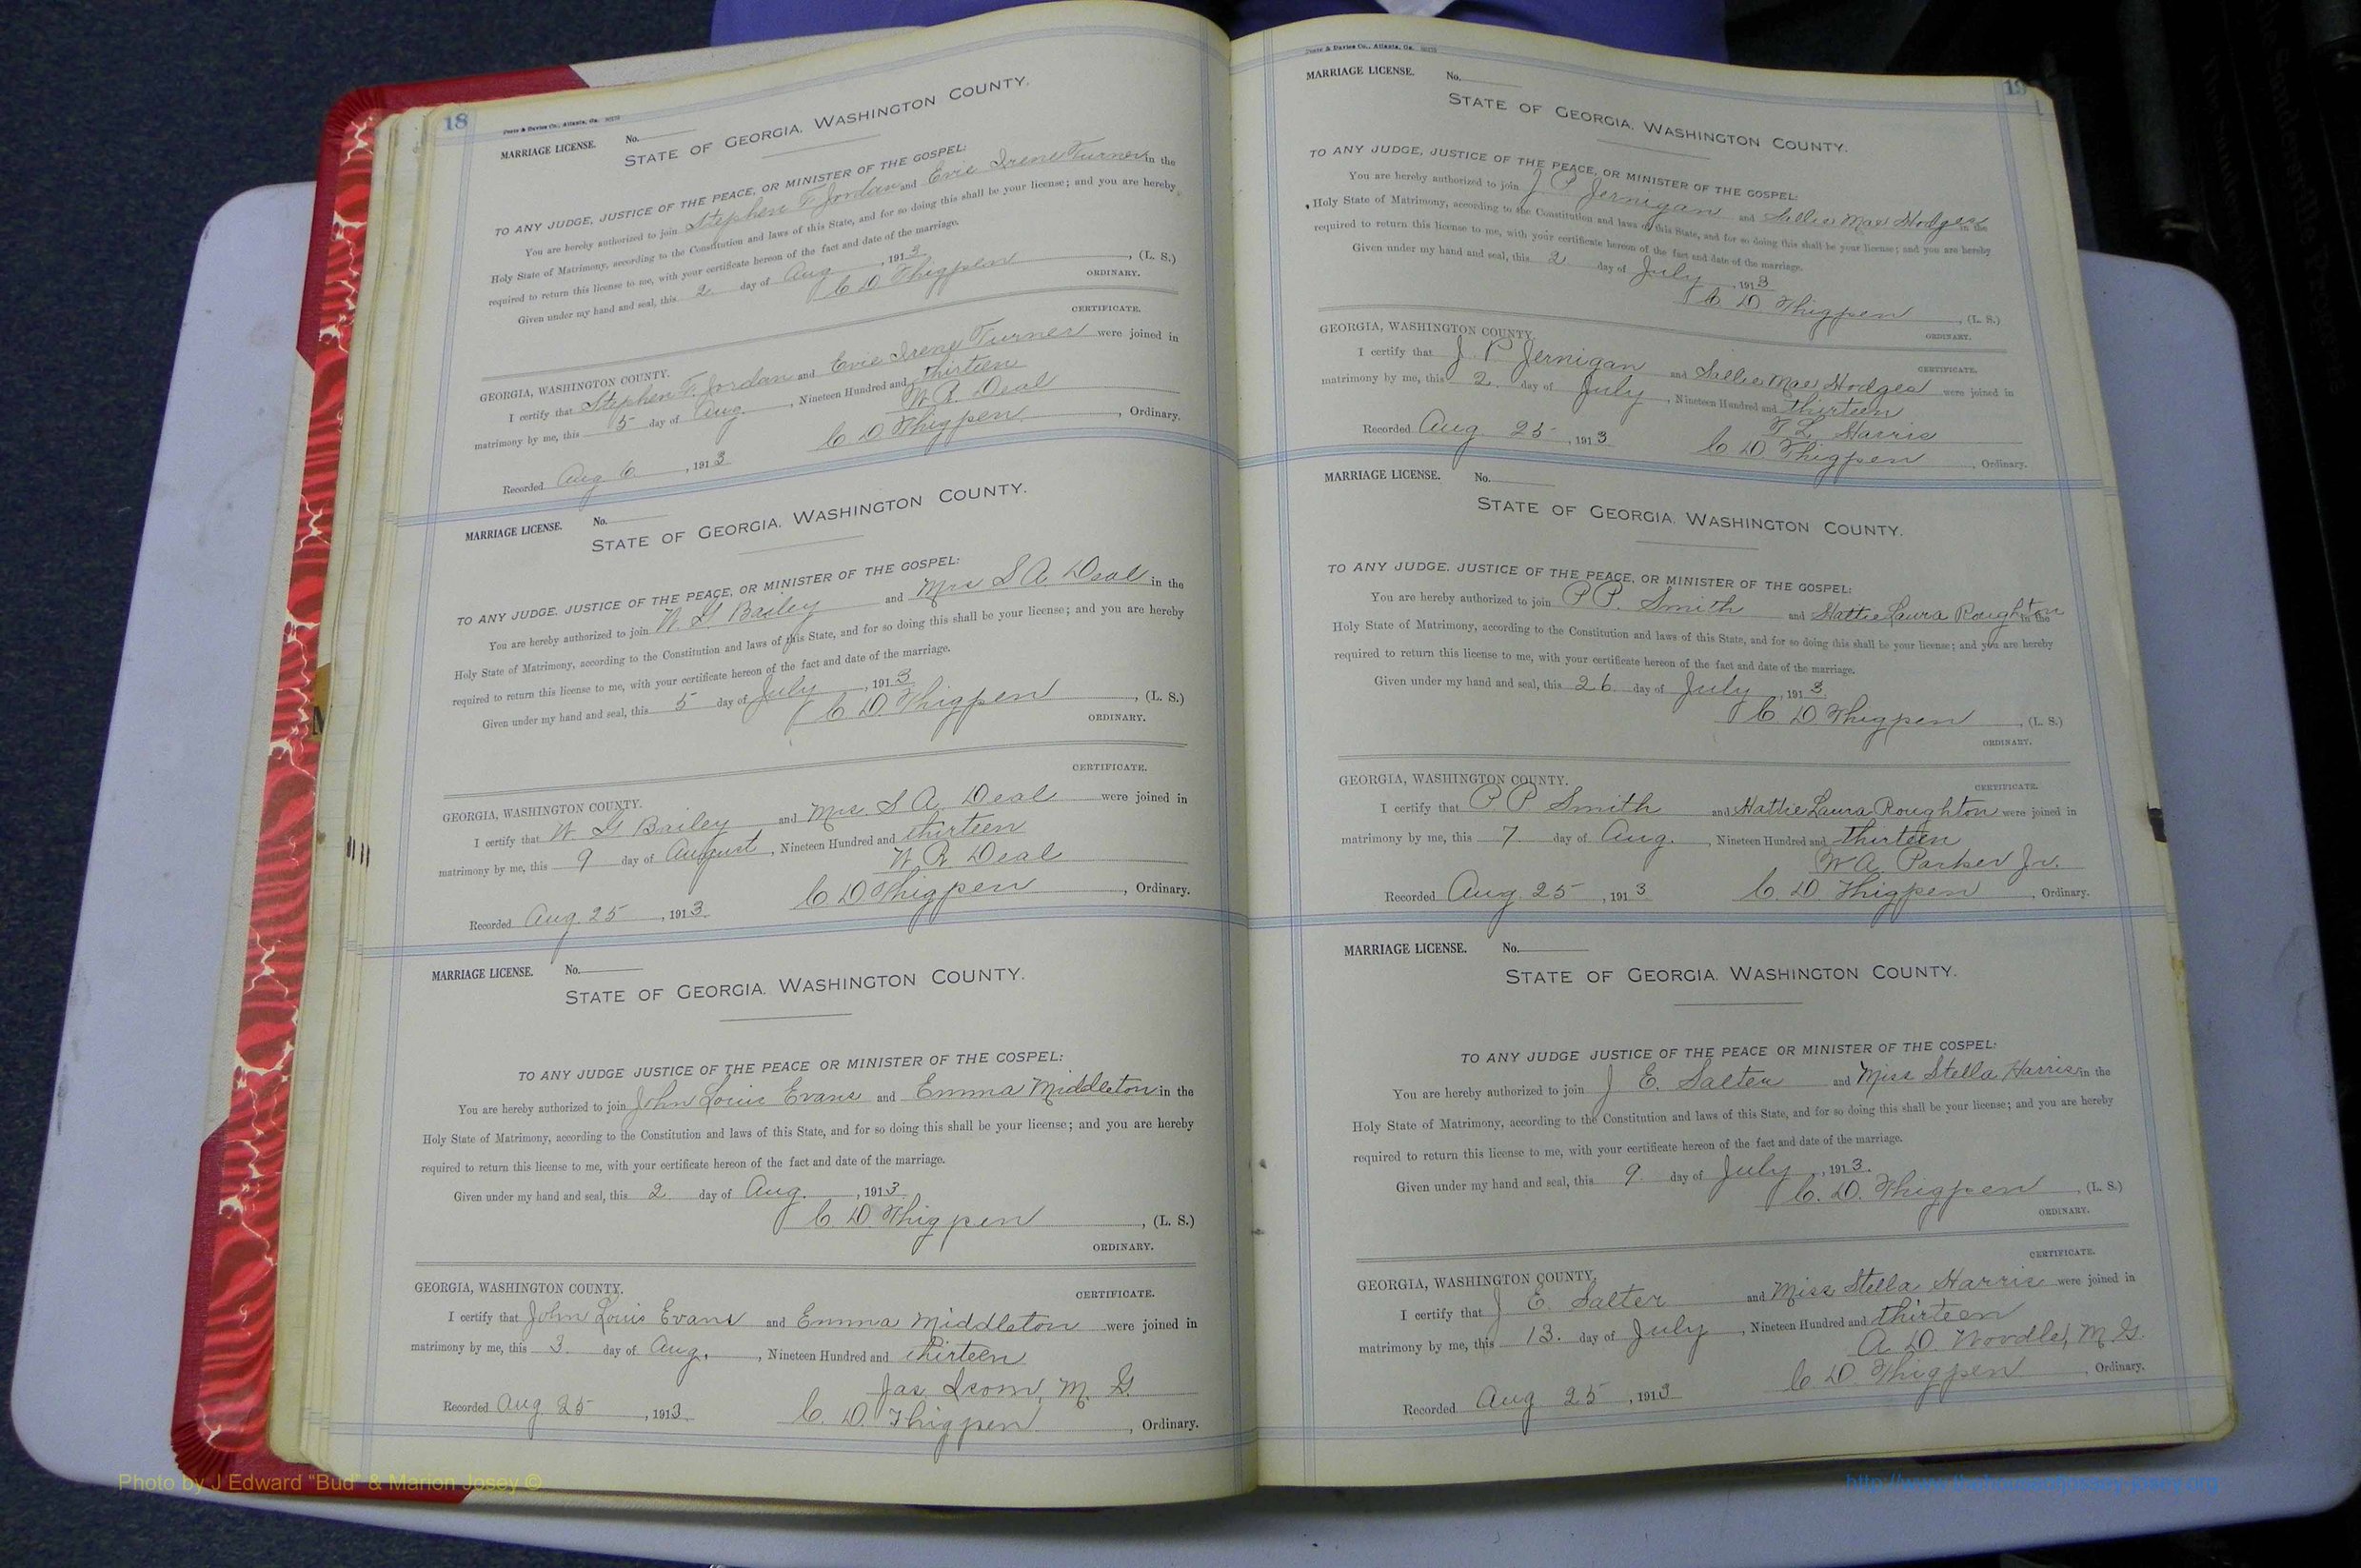 18
Foote & Davies Co., Atlanta, Ga.
MARRIAGE LICENSE. No.
STATE OF GEORGIA, WASHINGTON COUNTY.
TO ANY JUDGE, JUSTICE OF THE PEACE, OR MINISTER OF THE GOSPEL:
You are hereby authorized to join Stephen F. Jordan and Evie Irene Turner in the
Holy State of Matrimony, according to the Constitution and laws of this State, and for so doing this shall be your license; and you are hereby
required to return this license to me, with your certificate hereon of the fact and date of the marriage.
Given under my hand and seal, this 2 day of Aug , 1913
C D Thigpen , (L. S.)
ORDINARY.
CERTIFICATE.
GEORGIA, WASHINGTON COUNTY.
I certify that Stephen F. Jordan and Evie Irene Turner were joined in
matrimony by me, this 5 day of Aug. , Nineteen Hundred and thirteen
W. R. Deal
Recorded Aug 6 , 1913 C D Thigpen , Ordinary.
MARRIAGE LICENSE. No.
STATE OF GEORGIA, WASHINGTON COUNTY.
TO ANY JUDGE, JUSTICE OF THE PEACE, OR MINISTER OF THE GOSPEL:
You are hereby authorized to join W. G. Bailey and Mrs S A Deal in the
Holy State of Matrimony, according to the Constitution and laws of this State, and for so doing this shall be your license; and you are hereby
required to return this license to me, with your certificate hereon of the fact and date of the marriage.
Given under my hand and seal, this 5 day of July , 1913
C D. Thigpen , (L. S.)
ORDINARY.
CERTIFICATE.
GEORGIA, WASHINGTON COUNTY.
I certify that W. G Bailey and Mrs. S A. Deal were joined in
matrimony by me, this 9 day of August , Nineteen Hundred and thirteen
W. R. Deal
Recorded Aug 25 , 1913. C D Thigpen , Ordinary.
MARRIAGE LICENSE. No.
STATE OF GEORGIA, WASHINGTON COUNTY.
TO ANY JUDGE JUSTICE OF THE PEACE OR MINISTER OF THE GOSPEL:
You are hereby authorized to join John Louis Evans and Emma Middleton in the
Holy State of Matrimony, according to the Constitution and laws of this State, and for so doing this shall be your license; and you are hereby
required to return this license to me, with your certificate hereon of the fact and date of the marriage.
Given under my hand and seal, this 2 day of Aug. , 1913
C. D. Thigpen , (L. S.)
ORDINARY.
GEORGIA, WASHINGTON COUNTY.
CERTIFICATE.
I certify that John Louis Evans and Emma Middleton were joined in
matrimony by me, this 3 day of Aug. , Nineteen Hundred and thirteen
Jas. M. G.
Recorded Aug. 25 , 1913 C. D. Thigpen , Ordinary.
19
Foote & Davies Co., Atlanta, Ga.
MARRIAGE LICENSE. No.
STATE OF GEORGIA, WASHINGTON COUNTY.
TO ANY JUDGE, JUSTICE OF THE PEACE, OR MINISTER OF THE GOSPEL:
You are hereby authorized to join J P. Jernigan and Sallie Mae Hodges in the
Holy State of Matrimony, according to the Constitution and laws of this State, and for so doing this shall be your license; and you are hereby
required to return this license to me, with your certificate hereon of the fact and date of the marriage.
Given under my hand and seal, this 2 day of July , 1913
C D Thigpen , (L. S.)
ORDINARY.
GEORGIA, WASHINGTON COUNTY.
CERTIFICATE.
I certify that J. P Jernigan and Sallie Mae Hodges were joined in
matrimony by me, this 2 day of July , Nineteen Hundred and thirteen
T. L. Harris
Recorded Aug 25 , 1913 C D Thigpen , Ordinary.
MARRIAGE LICENSE. No.
STATE OF GEORGIA, WASHINGTON COUNTY.
TO ANY JUDGE, JUSTICE OF THE PEACE, OR MINISTER OF THE GOSPEL:
You are hereby authorized to join P P. Smith and Hattie Laura Roughton in the
Holy State of Matrimony, according to the Constitution and laws of this State, and for so doing this shall be your license; and you are hereby
required to return this license to me, with your certificate hereon of the fact and date of the marriage.
Given under my hand and seal, this 26 day of July , 1913.
C. D. Thigpen , (L. S.)
ORDINARY.
GEORGIA, WASHINGTON COUNTY.
CERTIFICATE.
I certify that P P. Smith and Hattie Laura Roughton were joined in
matrimony by me, this 7 day of Aug. , Nineteen Hundred and thirteen
W A. Parker Jr.
Recorded Aug. 25 , 1913 C. D. Thigpen , Ordinary.
MARRIAGE LICENSE. No.
STATE OF GEORGIA, WASHINGTON COUNTY.
TO ANY JUDGE JUSTICE OF THE PEACE OR MINISTER OF THE GOSPEL:
You are hereby authorized to join J E. Salter and Miss Stella Harris in the
Holy State of Matrimony, according to the Constitution and laws of this State, and for so doing this shall be your license; and you are hereby
required to return this license to me, with your certificate hereon of the fact and date of the marriage.
Given under my hand and seal, this 9. day of July , 1913.
C. D. Thigpen , (L. S.)
ORDINARY.
CERTIFICATE.
GEORGIA, WASHINGTON COUNTY,
I certify that J E. Salter and Miss Stella Harris were joined in
matrimony by me, this 13. day of July , Nineteen Hundred and thirteen
A. D. Woodle, M G.
Recorded Aug 25 , 1913 C. D. Thigpen , Ordinary.
Photo by J Edward "Bud" & Marion Josey ©